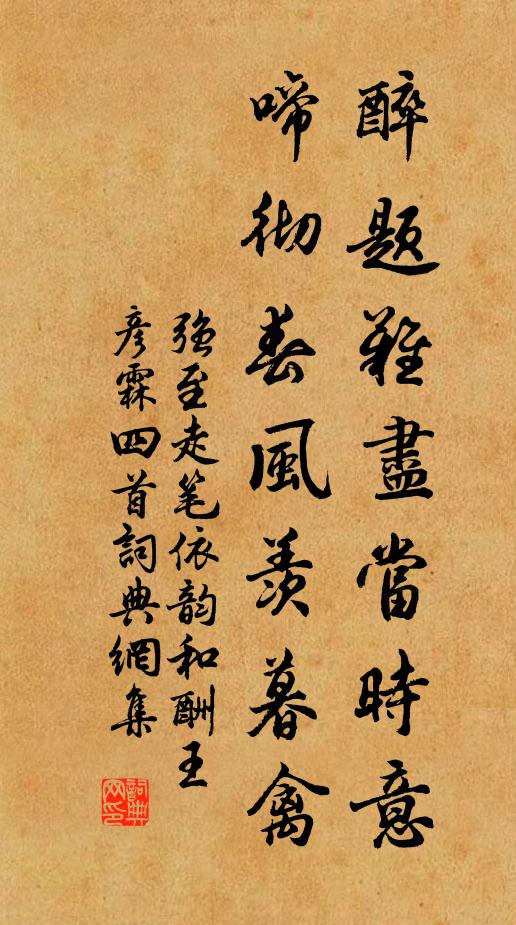 醉題難盡當時意
啼彻春風羨暮禽
强至走笔依韵和酬王
彦霖四首詞典網集
詞典網印